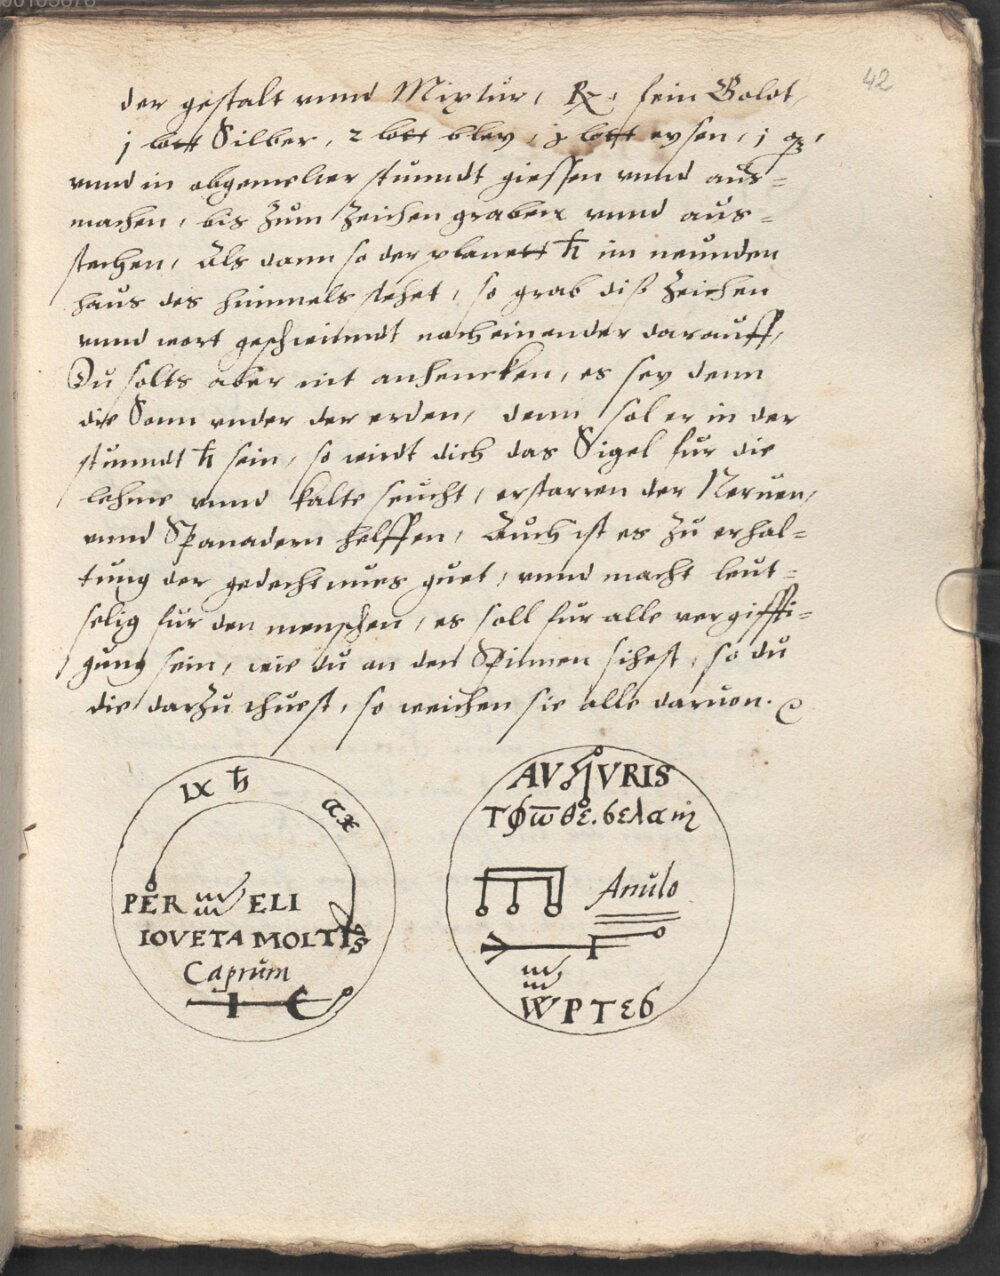 42
der gestalt vnnd Mixtur, ℞. fein Goldt,
j lott Silber, 2 lott bley, j lott eysen, j
vnnd in obgemelter stunndt giessen vnnd aus=
machen, bis zum zeichen graben vnnd aus=
stechen, Als dann so der planett ♄ im neunden
haus des himmels stehet, so grab diß zeichen
vnnd wort geschwinndt nach einander darauff,
Du solts aber nit anhencken, es sey denn
die Sonn vnder der erden, denn sol er in der
stunndt ♄ sein, so wirdt dich das Sigel fur die
lehme vnnd kalte seucht, erstarren der Neruen,
vnnd Spanadern helffen, Auch ist es zu erhal=
tung der gedechtnues guet, vnnd macht leut=
selig fur den menschen, es soll fur alle vergiffti=
gung sein, wie du an den Spinnen sihest, so du
die darzu thuest, so weichen sie alle daruon.
IX ♄ ax
PER ELI
IOVETA MOLTIS
Caprum
AV VRIS
Τφω̅ θε. βελαm
Anulo
W P T ε 6